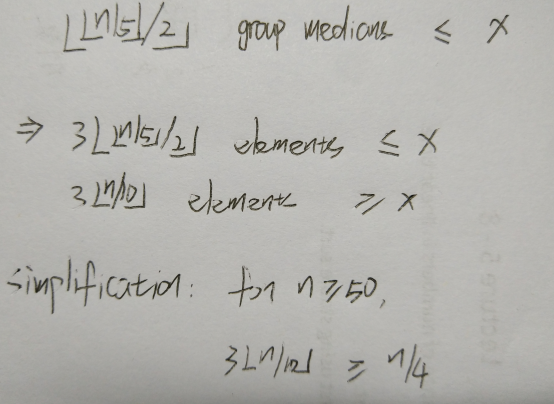 ⌊⌊n/5⌋/2⌋ group medians ≤ x
⇒ 3⌊⌊n/5⌋/2⌋ elements ≤ x
3⌊n/10⌋ elements ≥ x
simplification: for n ≥ 50,
3⌊n/10⌋ ≥ n/4